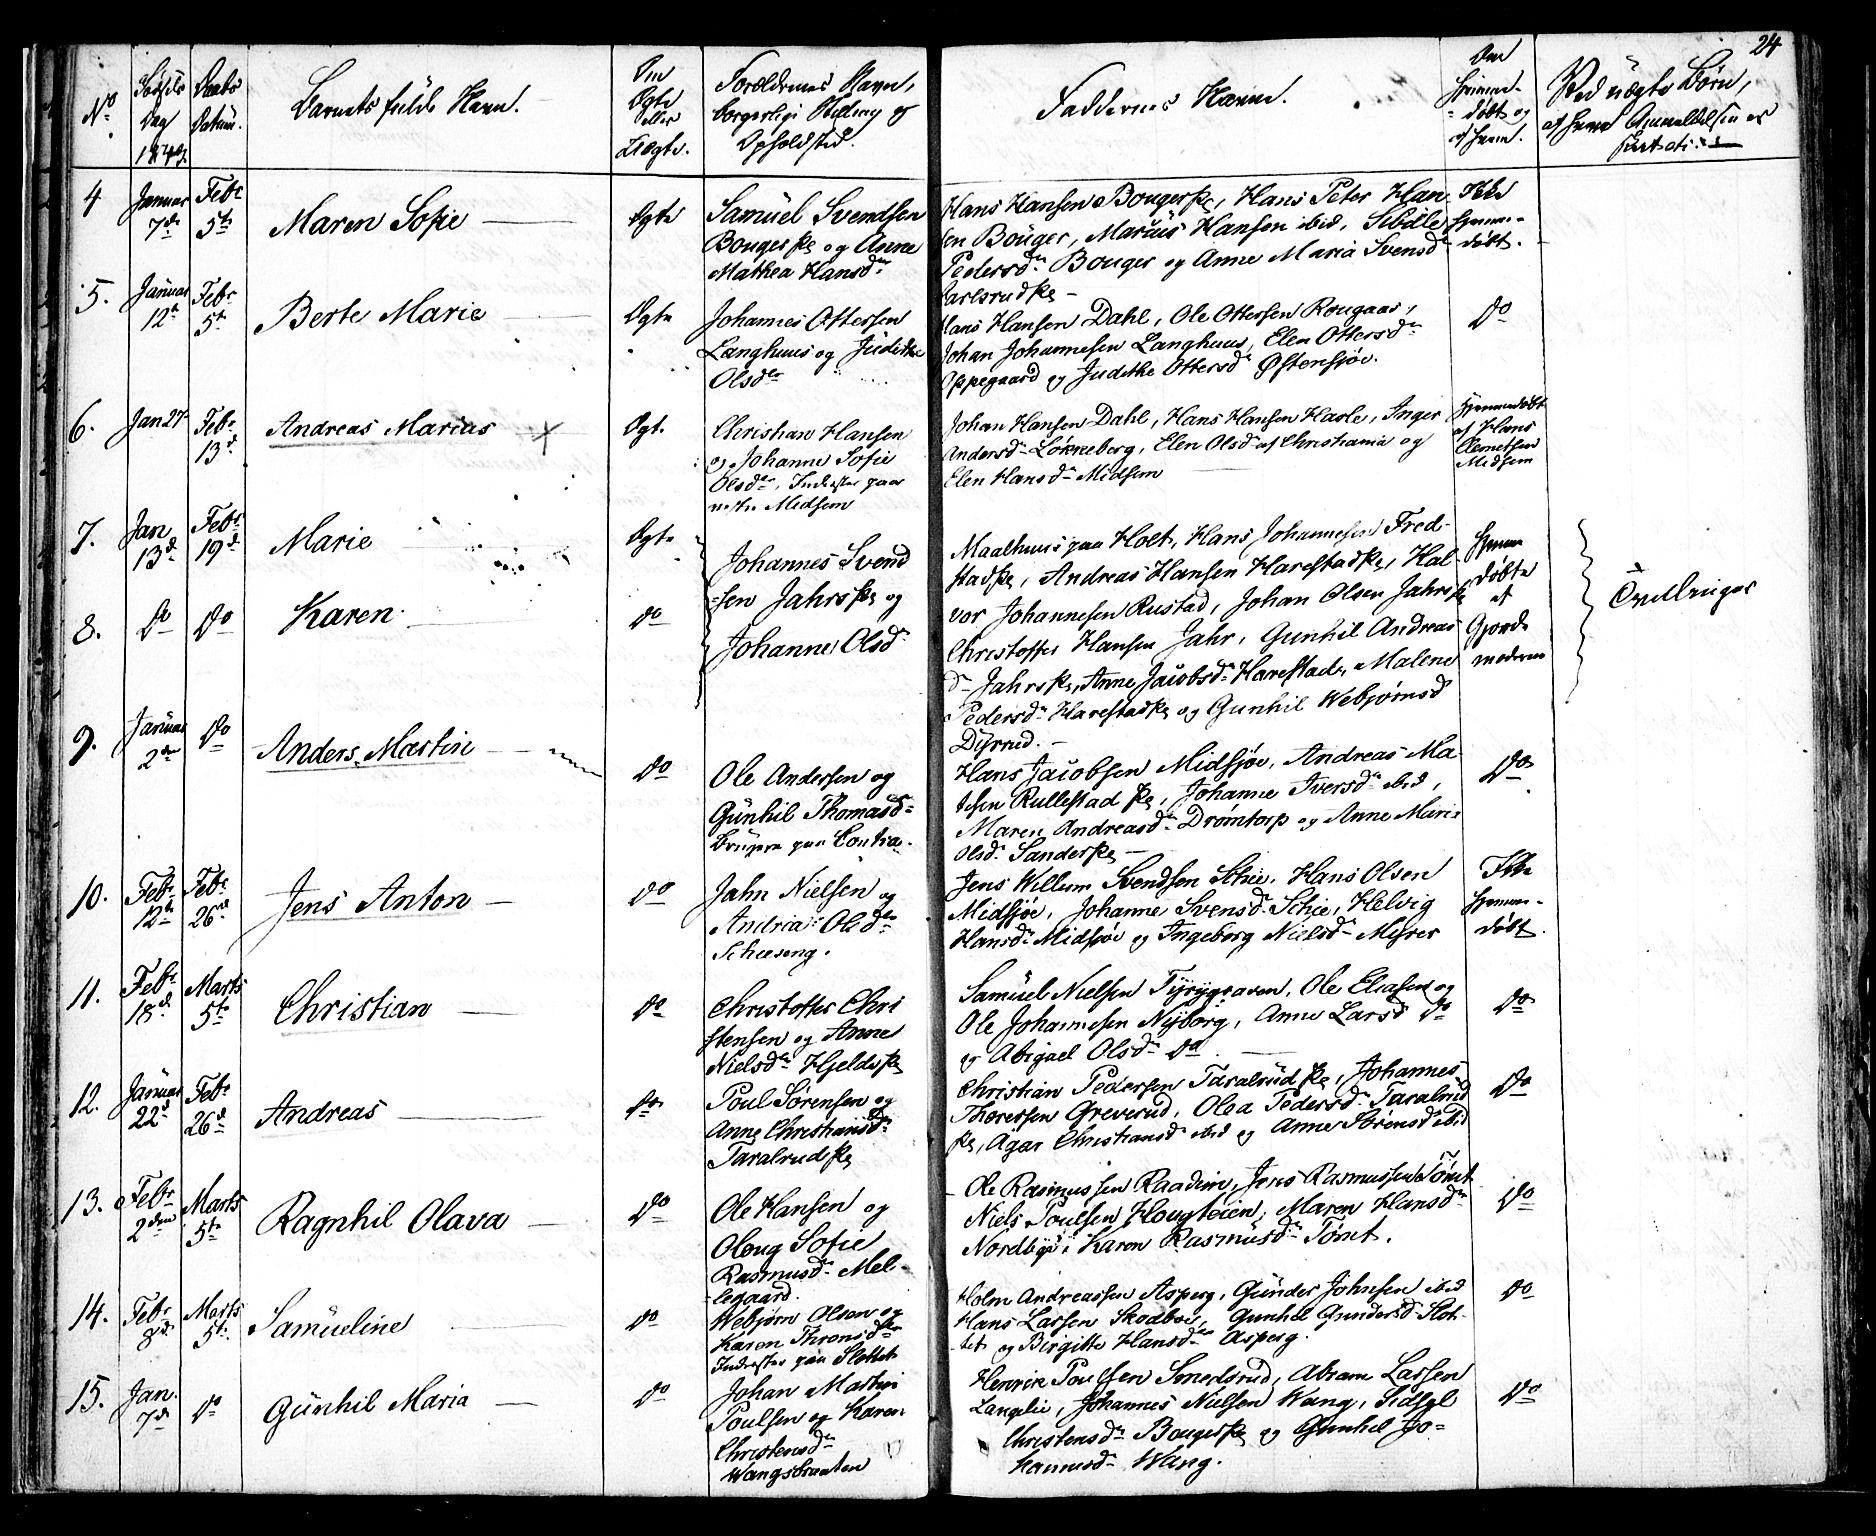 24
No
Fødsels
Dag
1849
Daabs
Datum.
Barnets fulde Navn.
Om
Ægte
eller
Uægte.
Forældrenes Navn,
borgerlige Stilling og
Opholdsted.
Faddernes Navne.
Om
hjemme-
døbt og
af hvem.
Ved uægte Børn,
af hvem Anmeldelsen er
4
Januar
7de
Febr
5te
Maren Sofie
Ægte
Samuel Svendsen
Bougerske og Anne
Mathea Hansdr
Hans Hansen Bougerske, Hans Peter Han-
sen Bouger, Marius Hansen ibid, Sibille
Pedersdr Bouger og Anne Maria Svensdr
Karlsrudske
Ikke
hjemme-
døbt.
5.
Januar
12te
Febr
5te
Berte Marie
Ægte
Johannes Ottersen
Langhuus og Judithe
Olsdr
Hans Hansen Dahl, Ole Ottersen Rougaas,
Johan Johannesen Langhuus, Elen Ottersdr
Oppegaard og Judithe Ottersdr Østensjøe.
Do
6.
Jan 27
Febr
13de
Andreas Marius
Ægte
Christian Hansen
og Johanne Sofie
Olsdr, Inderster paa
nestre Midsem
Johan Hansen Dahl, Hans Hansen Hasle, Inger
Andersdr Løkkeberg, Elen Olsdr af Christiania og
Elen Hansdr Midsem
Hjemmedøbt
af Hans
Clemetsen
Midsem
7.
Jan
13de
Febr
19de
Marie
Ægte
Johannes Svend
-sen Jahrske og
Johanne Olsdr
Maalhuus paa Holt, Hans Johannesen Fred-
stadske, Andreas Hansen Harestadske, Hal-
vor Johannesen Rustad, Johan Olsen Jahrske
Christoffer Hansen Jahr, Gunhil Andreas
dr Jahrske, Anne Jacobsdr Harestad, Malene
Pedersdr Harestadske og Gunhil Webjørnsd
Dyrrud.
Hjemme
døbte
af
Gjorde
moderen
Tvillinger
8.
Do
Do
Karen
Do
9.
Januar
2den
Do
Anders Martin
Do
Ole Andersen og
Gunhil Thomasdr
Brugere paa Contra.
Hans Jacobsen Midsjøe, Andreas Ma-
tesen Rullestad ske, Johanne Iversdr ibid,
Maren Andreasdr Drømtorp og Anne Marie
Olsdr Sanderske
Do
10.
Febr
12te
Febr
26de
Jens Anton
Do
Jahn Nielsen og
Andrea Olsdr
Schieseng.
Jens Willum Svendsen Schie, Hans Olsen
Midsjøe, Johanne Svensdr Schie, Helvig
Hansdr Midsjøe og Ingeborg Nielsdr Myrer
Ikke
hjemme-
døbt.
11.
Febr
18de
Marts
5te
Christian
Do
Christoffer Chri
stensen og Anne
Nielsdr Hjeldeske
Samuel Nielsen Tyrigraven, Ole Eliasen og
Ole Johannesen Nyborg, Anne Larsd Do
og Abigael Olsdr Do
Do
12.
Januar
22de
Febr
26de
Andreas
Do
Poul Sørensen og
Anne Christiansdr
Taralrudske
Christian Pedersen Taralrudske, Johannes
Thoresen Greverud, Olea Pedersdr Taralrud
ske, Agar Christiansdr ibid og Anne Sørensdr ibid
Do
13.
Febr
2den
Marts
5te
Ragnhil Olava
Do
Ole Hansen og
Oloug Sofie
Rasmusdr Mel-
legaard.
Ole Rasmussen Raadim, Jens Rasmussen Tømt
Niels Poulsen Hougteien, Maren Hansdr
Nordbye, Karen Rasmusdr Tømt.
Do
14.
Febr
Marts
5te
Samueline
Do
Webjørn Olsen og
Karen Thronsdr
Inderster paa Slottet
Holm Andreassen Asperg, Gunder Johnsen ibid
Hans Larsen Skodboe, Gunhil Gundersd Slot-
tet og Birgitte Hansdr Asperg.
Do
15.
Jan.
7de
Do
Gunhil Maria
Do
Johan Martin
Poulsen og Karen
Christensdr
Wangsbraaten
Henrik Poulsen Smedsrud, Abram Larsen
Langelie, Johannes Nielsen Wang, Sidsel
Christensdr Bougerske og Gunhil Jo-
hannesdr Wang.
Do